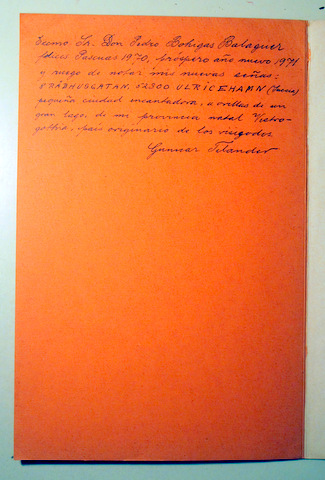 Excmo. Sr. Don Pedro Bohigas Balaguer
felices Pascuas 1970, próspero año nuevo 1971
y ruego de notar mis nuevas señas:
52300 ULRICEHAMN (Suecia)
pequeña ciudad encantadora, a orillas de un
gran lago, de mi provincia natal Vestro-
gothia, país originario de los visigodos.
Gunnar Tilander